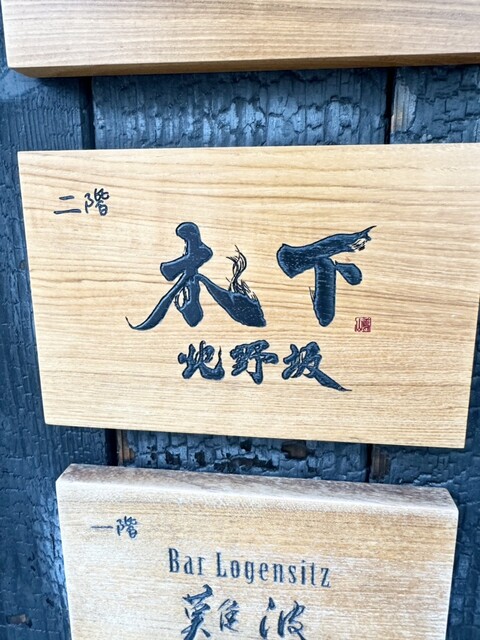 二階
木下
北野坂
一階
Bar Logensitz
難波